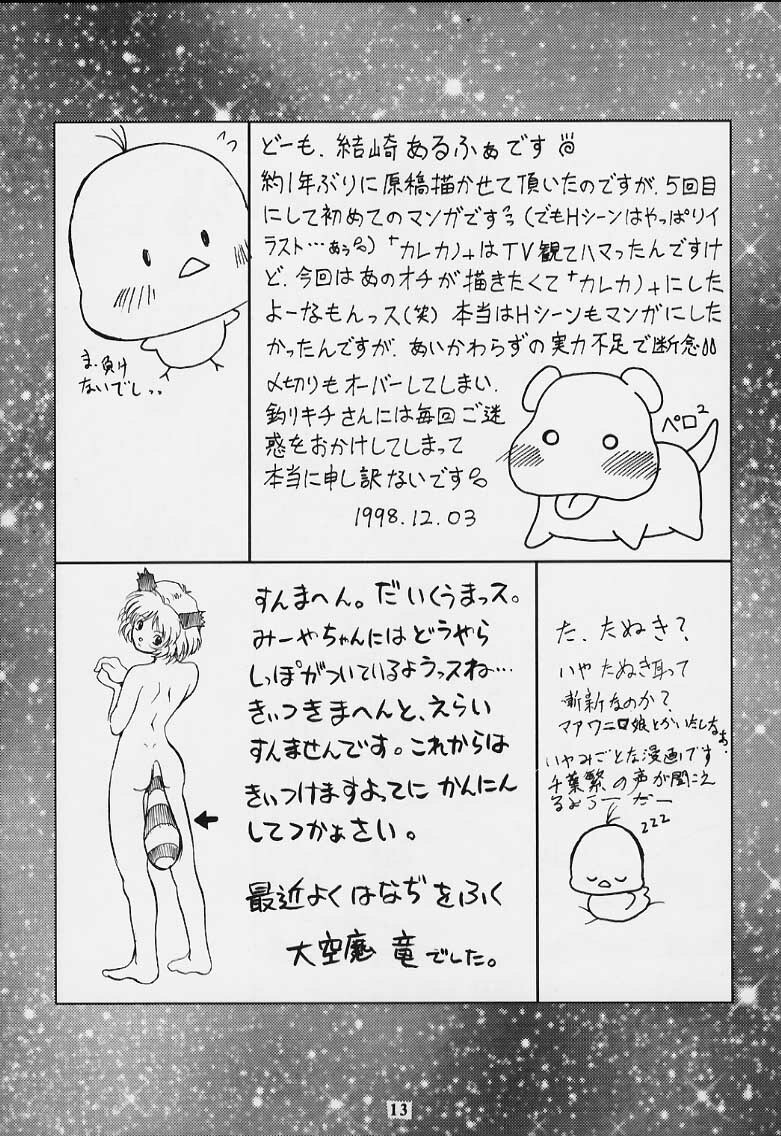 どーも、結崎あるふぁです
約1年ぶりに原稿描かせて頂いたのですが、5回目
にして初めてのマンガです（でもHシーンはやっぱりイ
ラスト…あぅ）「カレカノ」はTV観てハマったんですけ
ど、今回はあのオチが描きたくて「カレカノ」にした
よーなもんっス（笑）本当はHシーンもマンガにした
かったんですが、あいかわらずの実力不足で断念
〆切りもオーバーしてしまい、
釣りキチさんには毎回ご迷
惑をおかけしてしまって
本当に申し訳ないです
1998.12.03
ま、負け
ないでし、、
ペロ2
すんまへん。だいくうまっス。
みーやちゃんにはどうやら
しっぽがついているようっスね…
きぃつきまへんと、えらい
すんませんです。これからは
きぃつけますよってに かんにん
してつかぁさい。
最近よくはなぢをふく
大空魔 竜でした。
た、たぬき？
いや たぬき耳って
斬新なのか？
マアワニロ娘とかいたしなぁ、
いやみごとな漫画です
千葉繁の声が聞こえ
るよろーだー
zzz
13